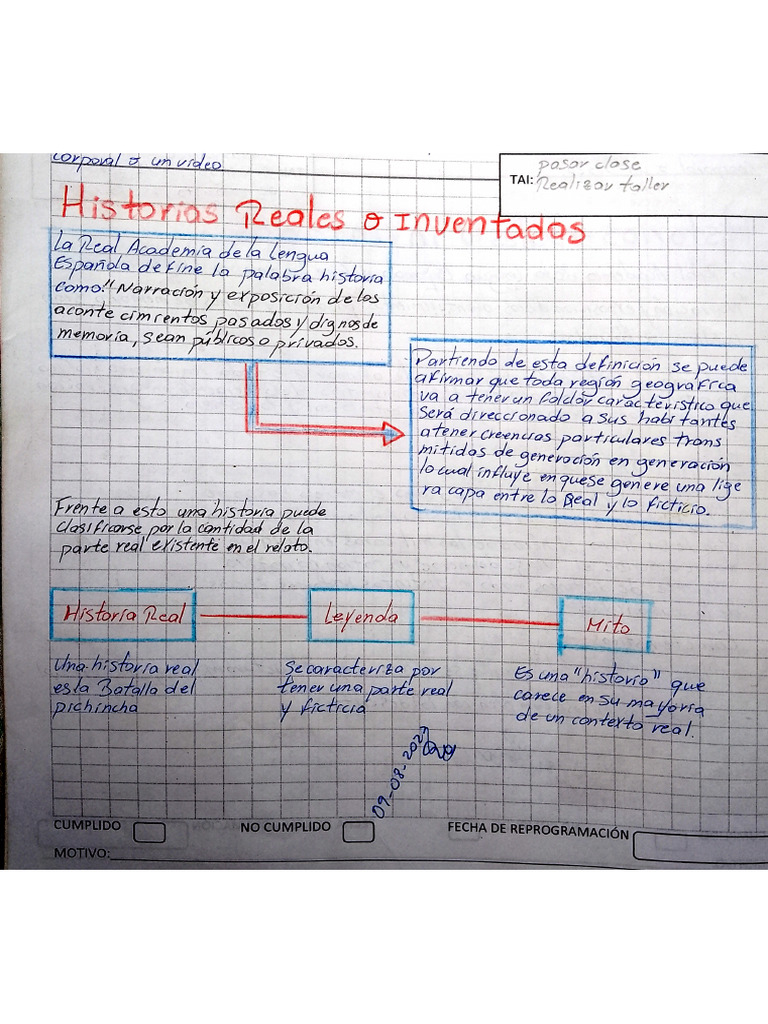 corporal o un video
pasar clase
TAI: Realizar taller
Historias Reales o Inventados
La Real Academia de la Lengua
Española define la palabra historia
como: "Narración y exposición de los
aconte cimientos pasados y dignos de
memoria, sean públicos o privados.
Partiendo de esta definición se puede
afirmar que toda región geográfica
va a tener un folclor característico que
será direccionado a sus habitantes
a tener creencias particulares trans
mitidas de generación en generación
lo cual influye en que se genere una lige
ra capa entre lo Real y lo ficticio.
Frente a esto una historia puede
clasificarse por la cantidad de la
parte real existente en el relato.
Historia Real
Leyenda
Mito
Una historia real
es la Batalla del
pichincha
Se caracteriza por
tener una parte real
y ficticia
Es una "historia" que
carece en su mayoria
de un contexto real.
CUMPLIDO
NO CUMPLIDO
FECHA DE REPROGRAMACIÓN
MOTIVO: